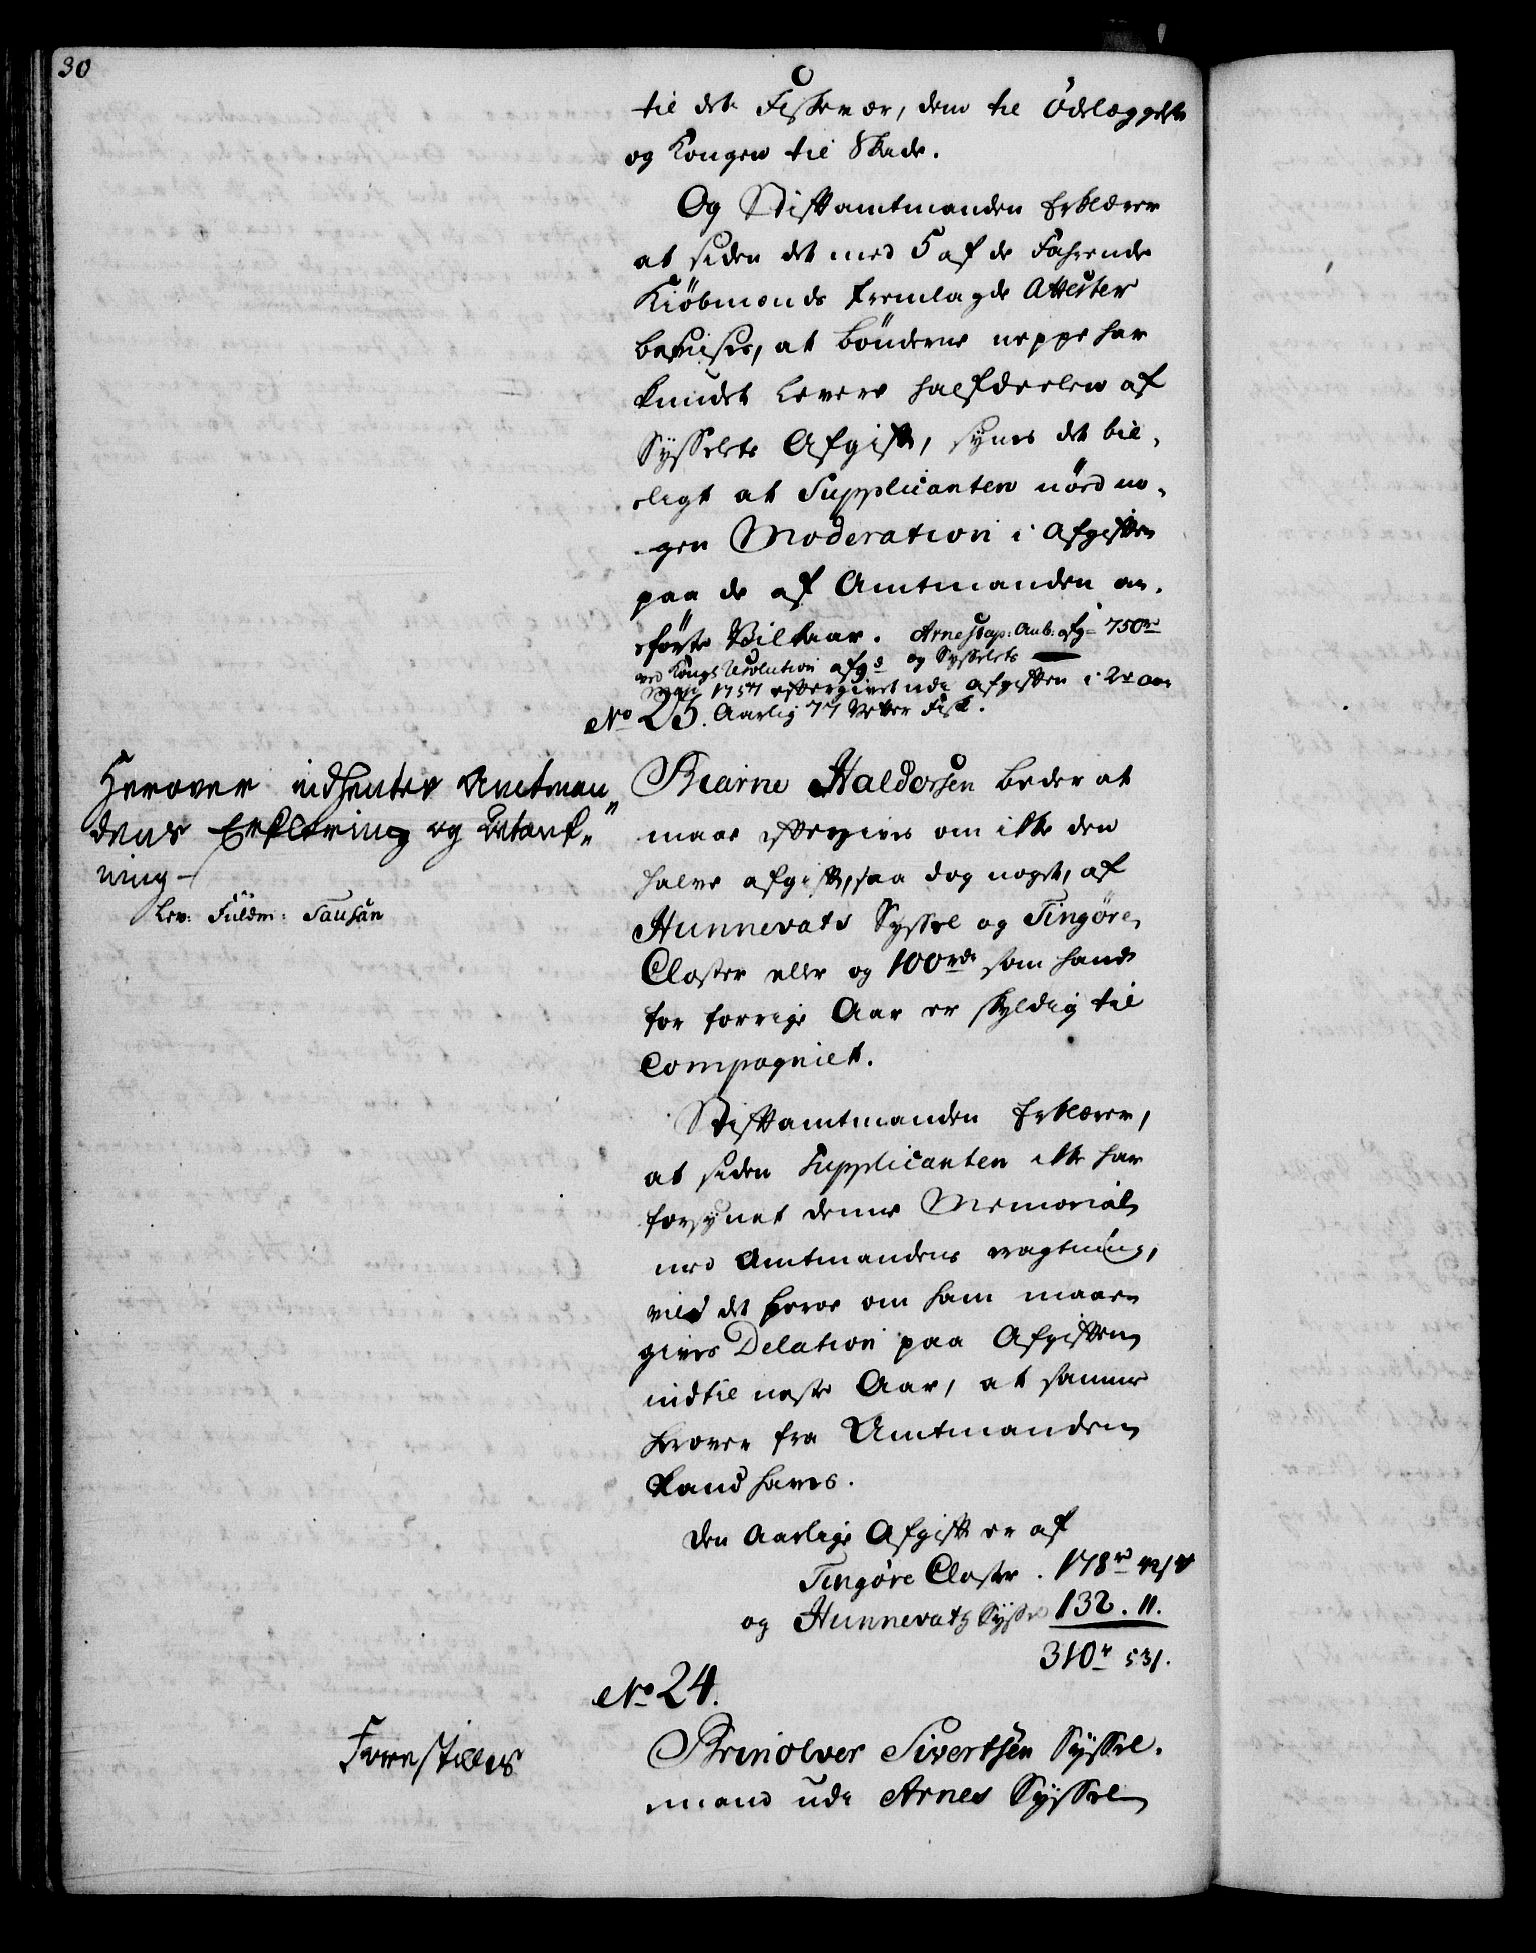 30
til det Fisker ær, dem til Ödelæggelse
og Kongen til Skade.
Og Stiftamtmanden Erklærer
at siden det med 5 af de Fahrende
Kiöbmends fremlagde Attester
bevises, at bönderne neppe har
kundet Levere halfdeelen af
Sysselets Afgift, synes det bil-
ligt at Supplicanten nöed no-
gen Moderation i Afgiften
paa de af Amtmanden an-
förte Vilkaar. Arnestap: Amb: afg= 750 rd
ved Kongl Resolution afgs og Sysselets
May 1757 eftergivet udi afgiften i 2de aar
No 23. Aarlig 77 Vetter Fisk.
Herover indhentes Amtman-
dens Erklæring og Betænk-
ning
Lev: Fuldm: Tausan
Biarne Haldorsen beder at
maae eftergives om ikke den
halve afgift, saa dog noget, af
Hunnevats Syssel og Tingöre
Closter eller og 100 rdr som hand
for forrige Aar er skyldig til
Compagniet.
Stiftamtmanden Erklærer,
at siden Supplicanten ikke har
forsynet denne Memorial
med Amtmandens pagtning,
vild det beroe om ham maae
gives Delation paa Afgiften
indtil neste Aar, at samme
herover fra Amtmanden
kand haves.
den Aarlige Afgift er af
Tingöre Closter . 178 rd 42 s
og Hunnevats Syssel 132 . 11.
310 r 53 s.
No 24.
Forestilles
Brinolver Sivertsen Syssel-
mand udi Arnes Syssel